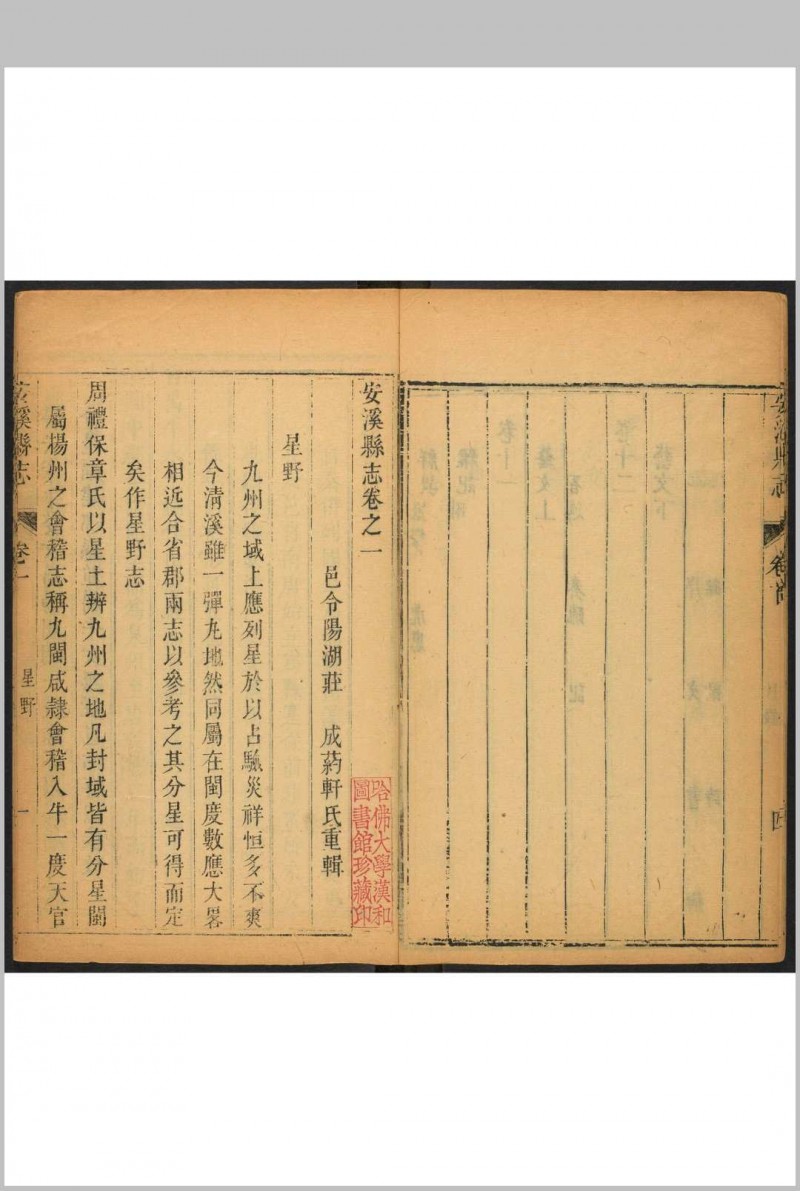 安溪縣志
四
安溪縣志卷之一
邑令陽湖莊 成葯軒氏重輯
哈佛大學漢和
圖書館珍藏印
星野
九州之域上應列星於以占驗災祥恒多不爽
今清溪雖一彈丸地然同屬在閩度數應大畧
相近合省郡兩志以參考之其分星可得而定
矣作星野志
周禮保章氏以星土辨九州之地凡封域皆有分星閩
屬楊州之會稽志稱九閩咸隸會稽入牛一度天官
安溪縣志 卷一 星野 一